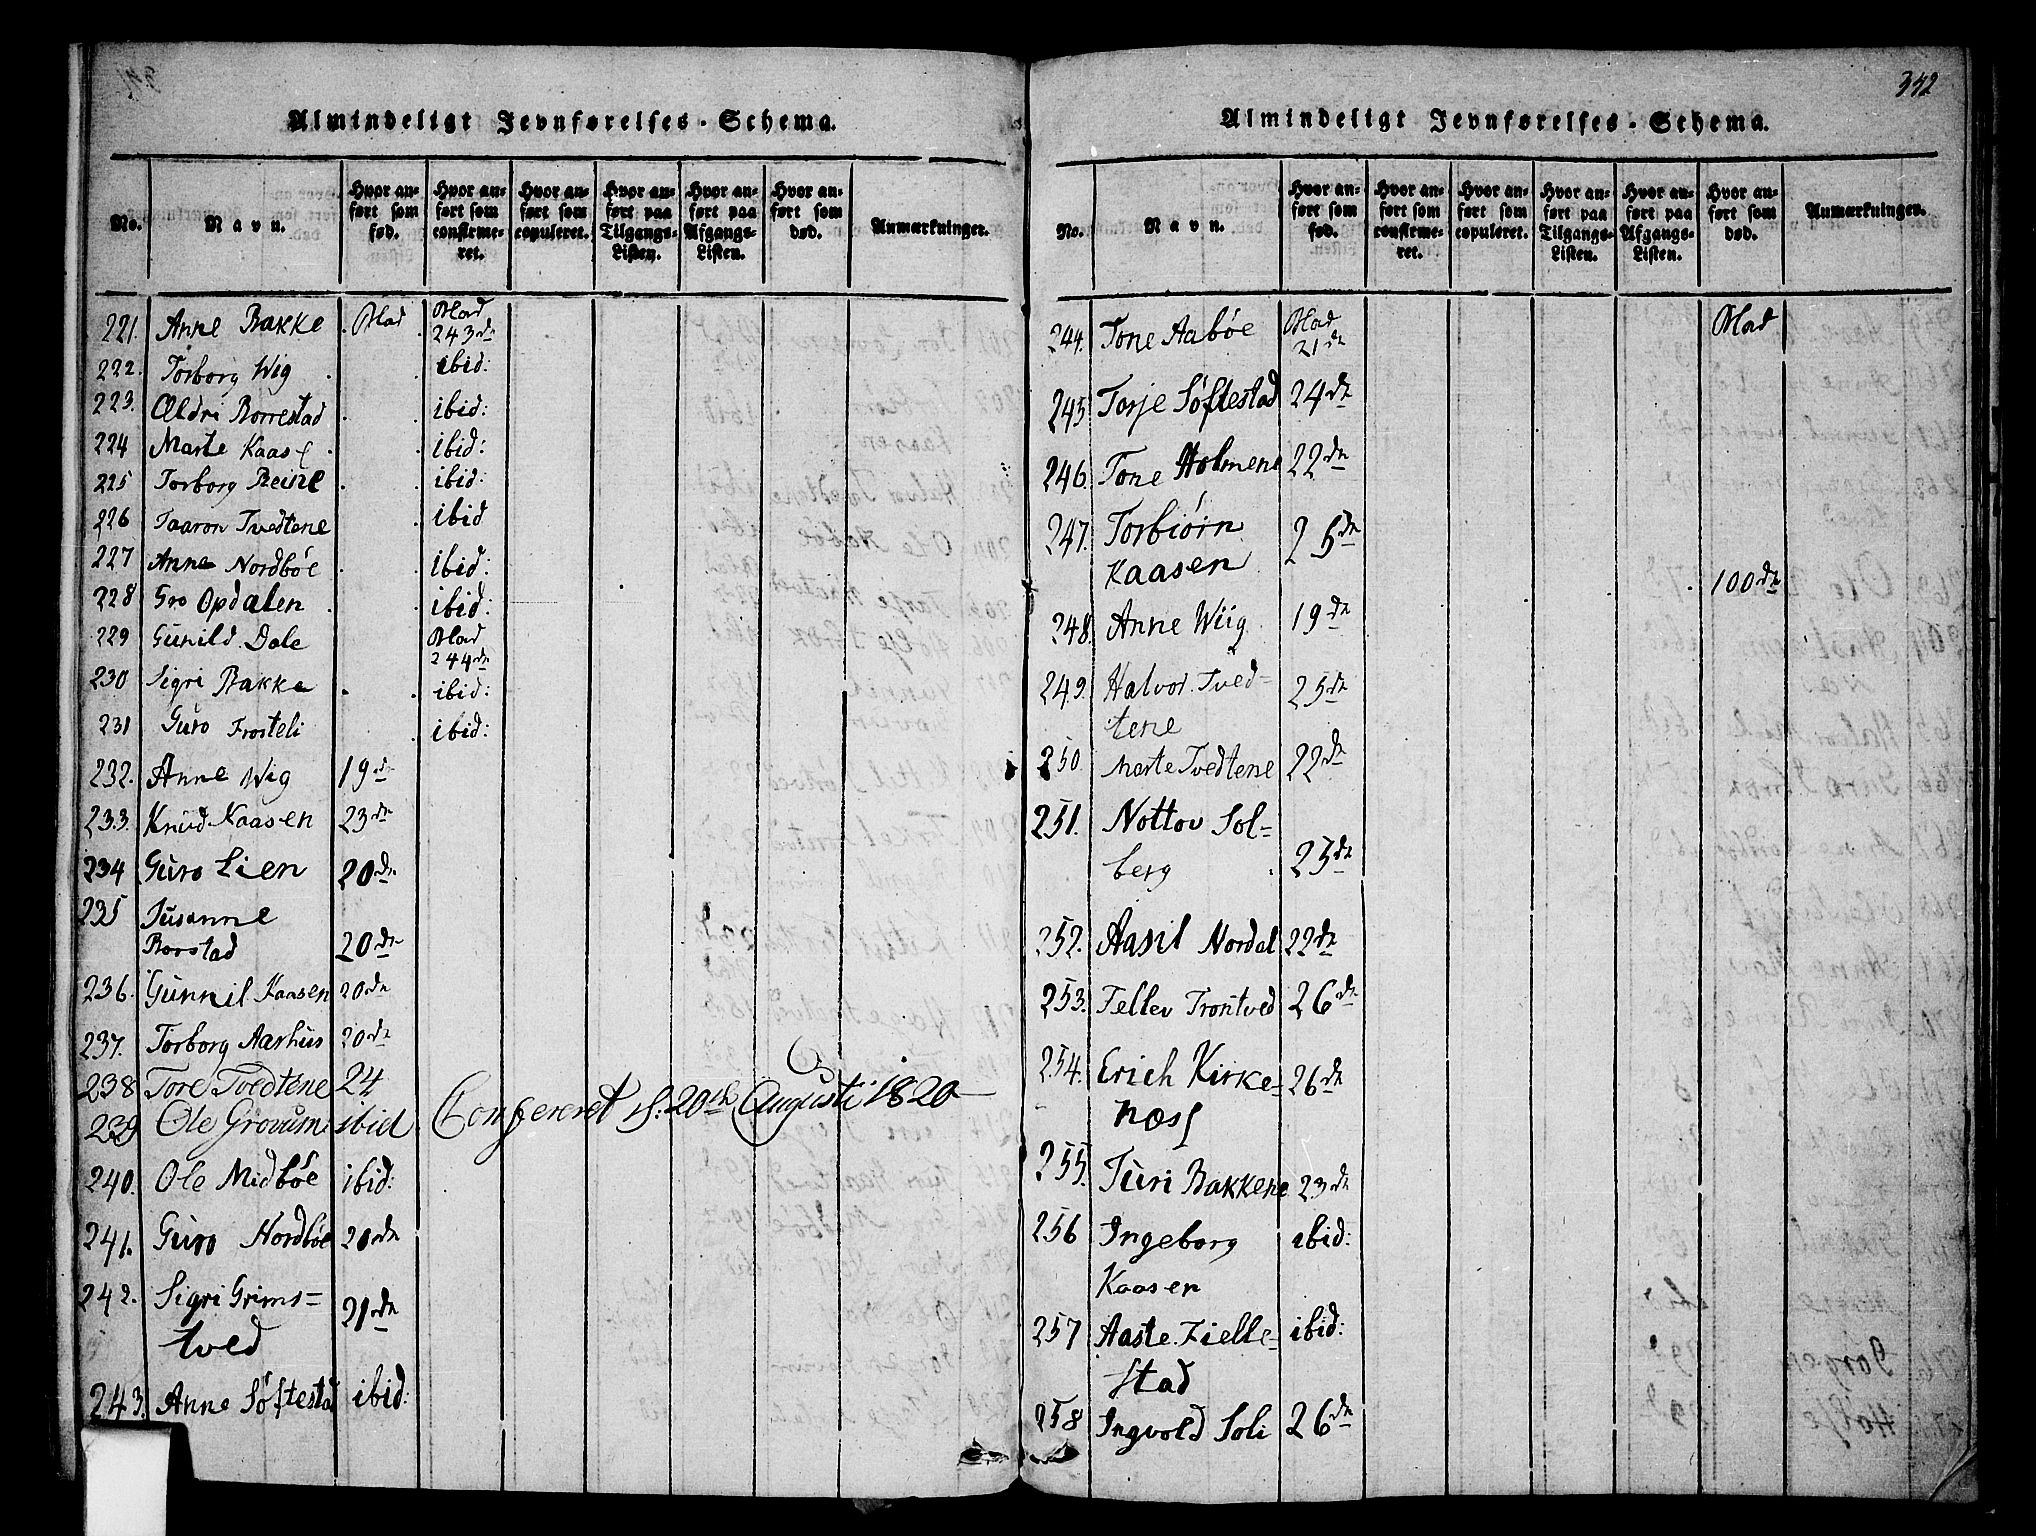 Almindeligt Jevnførelses-Schema.
No. Navn. Hvor anført som fød. Hvor anført som confirmeret. Hvor anført som copuleret. Hvor anført paa Tilgangs-Listen. Hvor anført paa Afgangs-Listen. Hvor anført som død. Anmærkninger.
221. Anne Bakke Blad Blad 243 dn
222. Torborg Wig ibid:
223. Ældri Borrestad ibid:
224 Marte Kaas ibid:
225 Torborg Beine ibid:
226 Taaron Tvedtene ibid
227 Anne Nordbøe ibid:
228 Gro Opdalen ibid:
229 Gunild Dale Blad 244 dn
230 Sigri Bakke ibid:
231 Guro Frosteli ibid:
232. Anne Wig 19 d
233. Knud Kaasen 23 dn
234 Guro Lien 20 dn
235 Susanne
Borstad 20 dn
236. Gunnil Kaasen 20 dn
237. Torborg Aarhus 20 dn
238 Tore Tvedtene 24
239 Ole Grovum ibid. Confereret d: 20de Augusti 1820
240. Ole Midbøe ibid:
241. Guro Nordbøe 20 dn
242. Sigri Grims=
tved 21 dn
243. Anne Søftestad ibid:
342
Almindeligt Jevnførelses-Schema.
No. Navn. Hvor anført som fød. Hvor anført som confirmeret. Hvor anført som copuleret. Hvor anført paa Tilgangs-Listen. Hvor anført paa Afgangs-Listen. Hvor anført som død. Anmærkninger.
244. Tone Aabøe Blad 21 dn Blad
245 Torje Søftestad 24 dn
246. Tone Holmene 22 dn
247. Torbiørn 25 dn
Kaasen 100 dn
248. Anne Wiig 19 dn
249. Halvor Tved= 25 dn
tene
250. Marte Tvedtene 22 dn
251. Nottov Sol=
berg 25 dn
252. Aasil Nordal 22 dn
253. Tellev Trontved 26 dn
254. Erich Kirke= 26 dn
næss
255. Turi Bakkene 23 dn
256 Ingeborg ibid:
Kaasen
257 Aaste Fielle= ibid:
stad
258 Ingvold Soli 26 dn